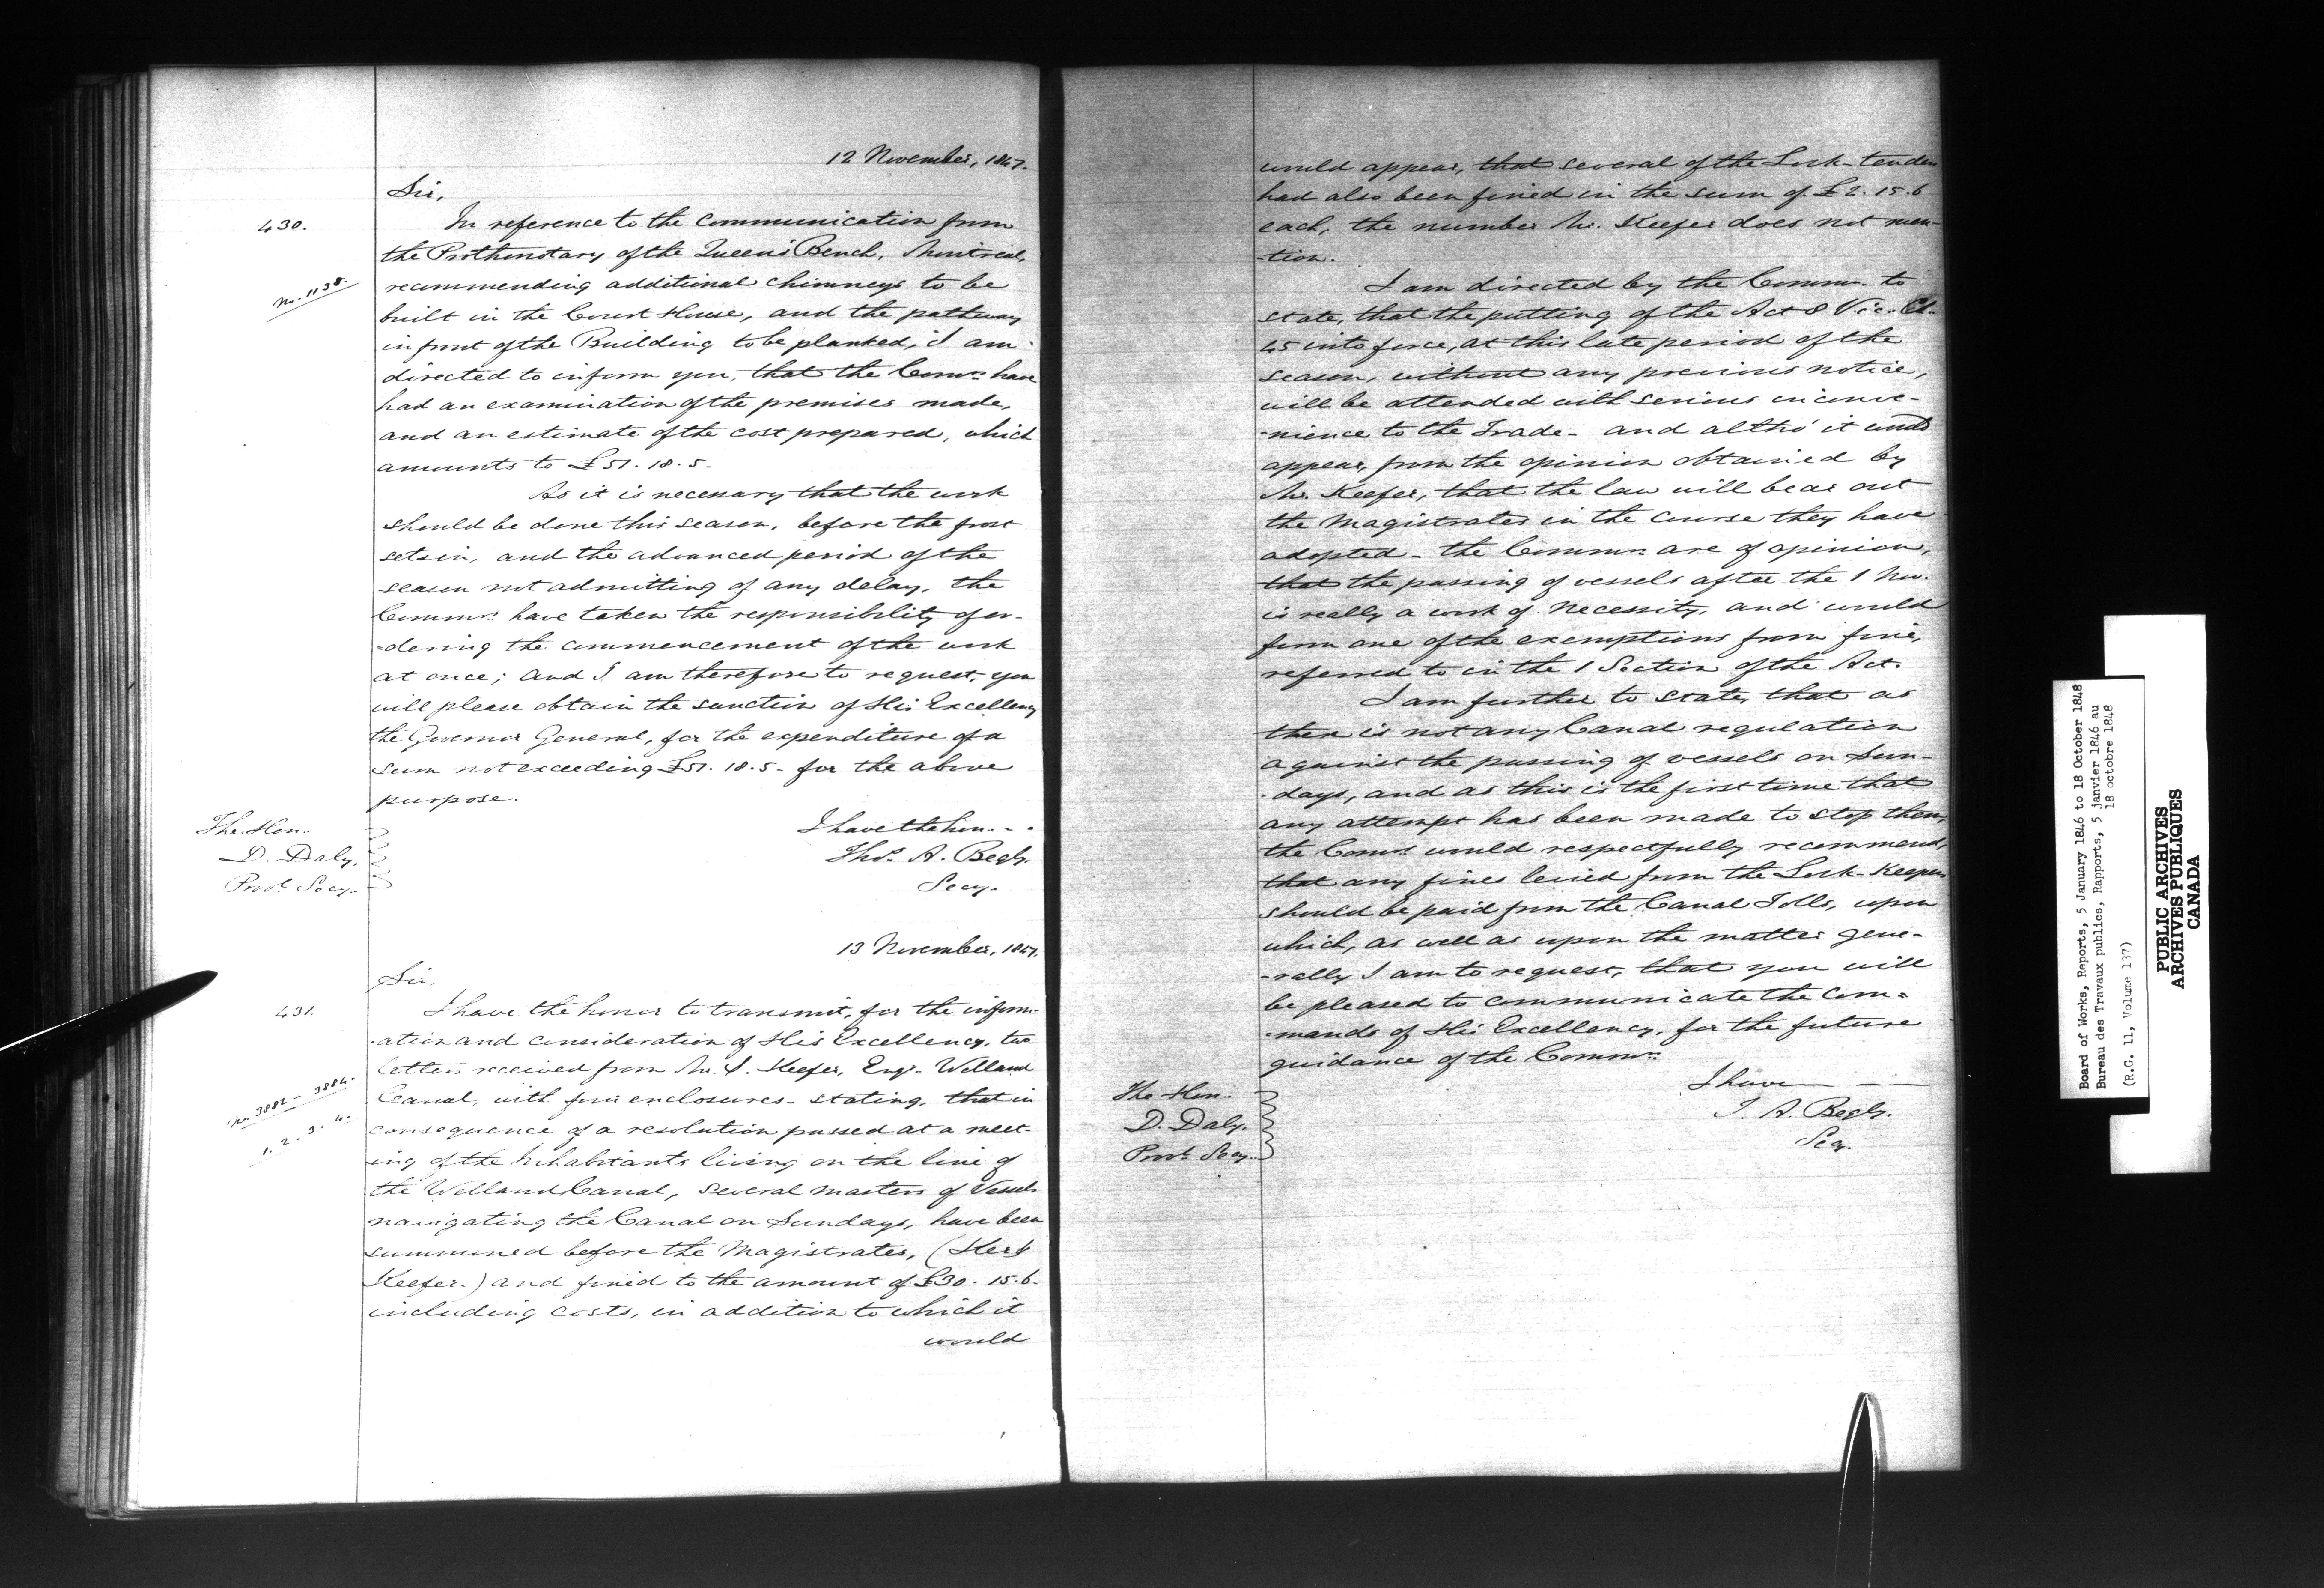 12 November, 1847.
Sir,
430.
In reference to the Communication from
the Prothonotary of the Queen's Bench, Montreal,
No. 1138.
recommending additional Chimneys to be
built in the Court House, and the pathway
in front of the Building to be planked, I am
directed to inform you, that the Comrs. have
had an examination of the premises made,
and an estimate of the cost prepared, which
amounts to £51. 18. 5-
As it is necessary that the work
should be done this season, before the frost
sets in, and the advanced period of the
season not admitting of any delay, the
Commrs. have taken the responsibility of or-
-dering the commencement of the work
at once; and I am therefore to request, you
will please obtain the sanction of His Excellency
the Governor General, for the expenditure of a
sum not exceeding £51. 18. 5- for the above
purpose.
The Hon.
D. Daly.
Provl. Secy.
I have the hon. - .
Thos. A. Begly.
Secy.
13 November, 1847.
Sir,
431.
I have the honor to transmit, for the inform-
-ation and consideration of His Excellency, two
letters received from Mr. S. Keefer, Engr. Welland
3882 - 3884-
1. 2. 3. 4.
Canal, with four enclosures - stating, that in
consequence of a resolution passed at a meet-
-ing of the Inhabitants living on the line of
the Welland Canal, several masters of Vessels
navigating the Canal on Sundays, have been
summoned before the Magistrates,
Keefer.) and fined to the amount of £30. 15. 6-
including costs, in addition to which it
would
would appear, that several of the Lock-tenders
had also been fined in the sum of £2. 15. 6
each, the number Mr. Keefer does not men-
-tion.
I am directed by the Commrs. to
state, that the putting of the Act 8 Vic. Ch.
45 into force, at this late period of the
season, without any previous notice,
will be attended with serious inconve-
-nience to the Trade - and altho' it would
appear, from the opinion obtained by
Mr. Keefer, that the law will bear out
the Magistrates in the course they have
adopted - the Commrs. are of opinion,
that the passing of vessels after the 1 Nov.
is really a work of necessity, and would
form one of the exemptions from fine,
referred to in the 1 Section of the Act.
I am further to state, that as
there is not any Canal regulation
against the passing of vessels on Sun-
-days, and as this is the first time that
any attempt has been made to stop them,
the Comrs. would respectfully recommend,
that any fines levied from the Lock-Keepers
should be paid from the Canal Tolls, upon
which, as well as upon the matter gene-
-rally I am to request, that you will
be pleased to communicate the com-
-mands of His Excellency, for the future
guidance of the Commrs.
The Hon.
D. Daly.
Provl. Secy.
I have - -
T. A. Begly.
Secy.
Board of Works, Reports, 5 January 1846 to 18 October 1848
Bureau des Travaux publics, Rapports, 5 janvier 1846 au
18 octobre 1848
(R.G. 11, Volume 137)
PUBLIC ARCHIVES
ARCHIVES PUBLIQUES
CANADA